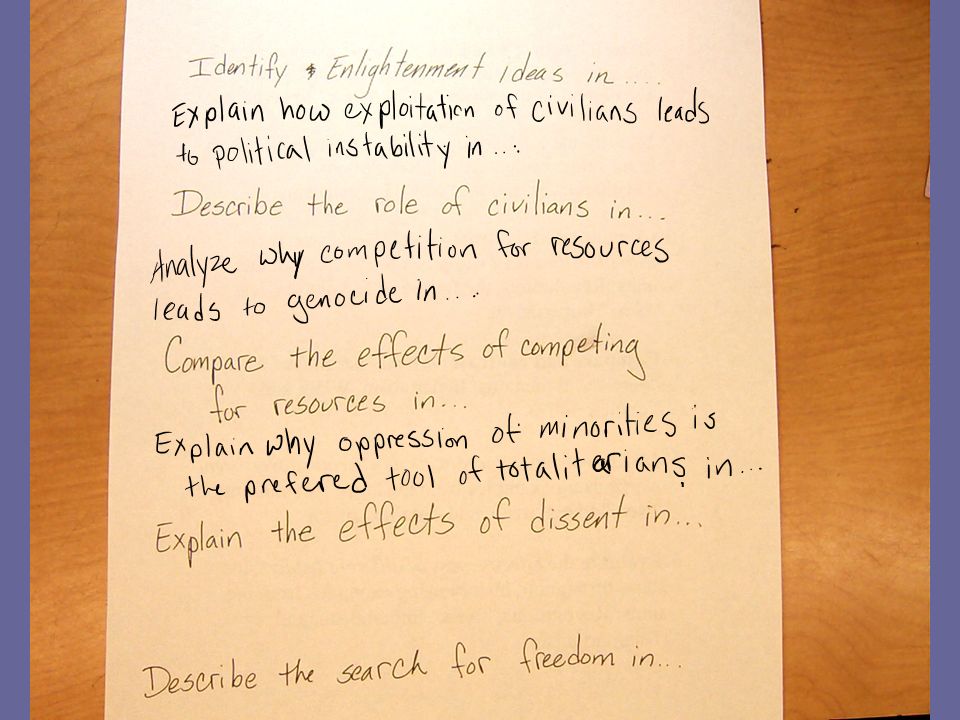 Identify & Enlightenment Ideas in....
Explain how exploitation of civilians leads
to political instability in....
Describe the role of civilians in...
Analyze why competition for resources
leads to genocide in....
Compare the effects of competing
for resources in...
Explain why oppression of minorities is
the prefered tool of totalitarians in...
Explain the effects of dissent in...
Describe the search for freedom in...